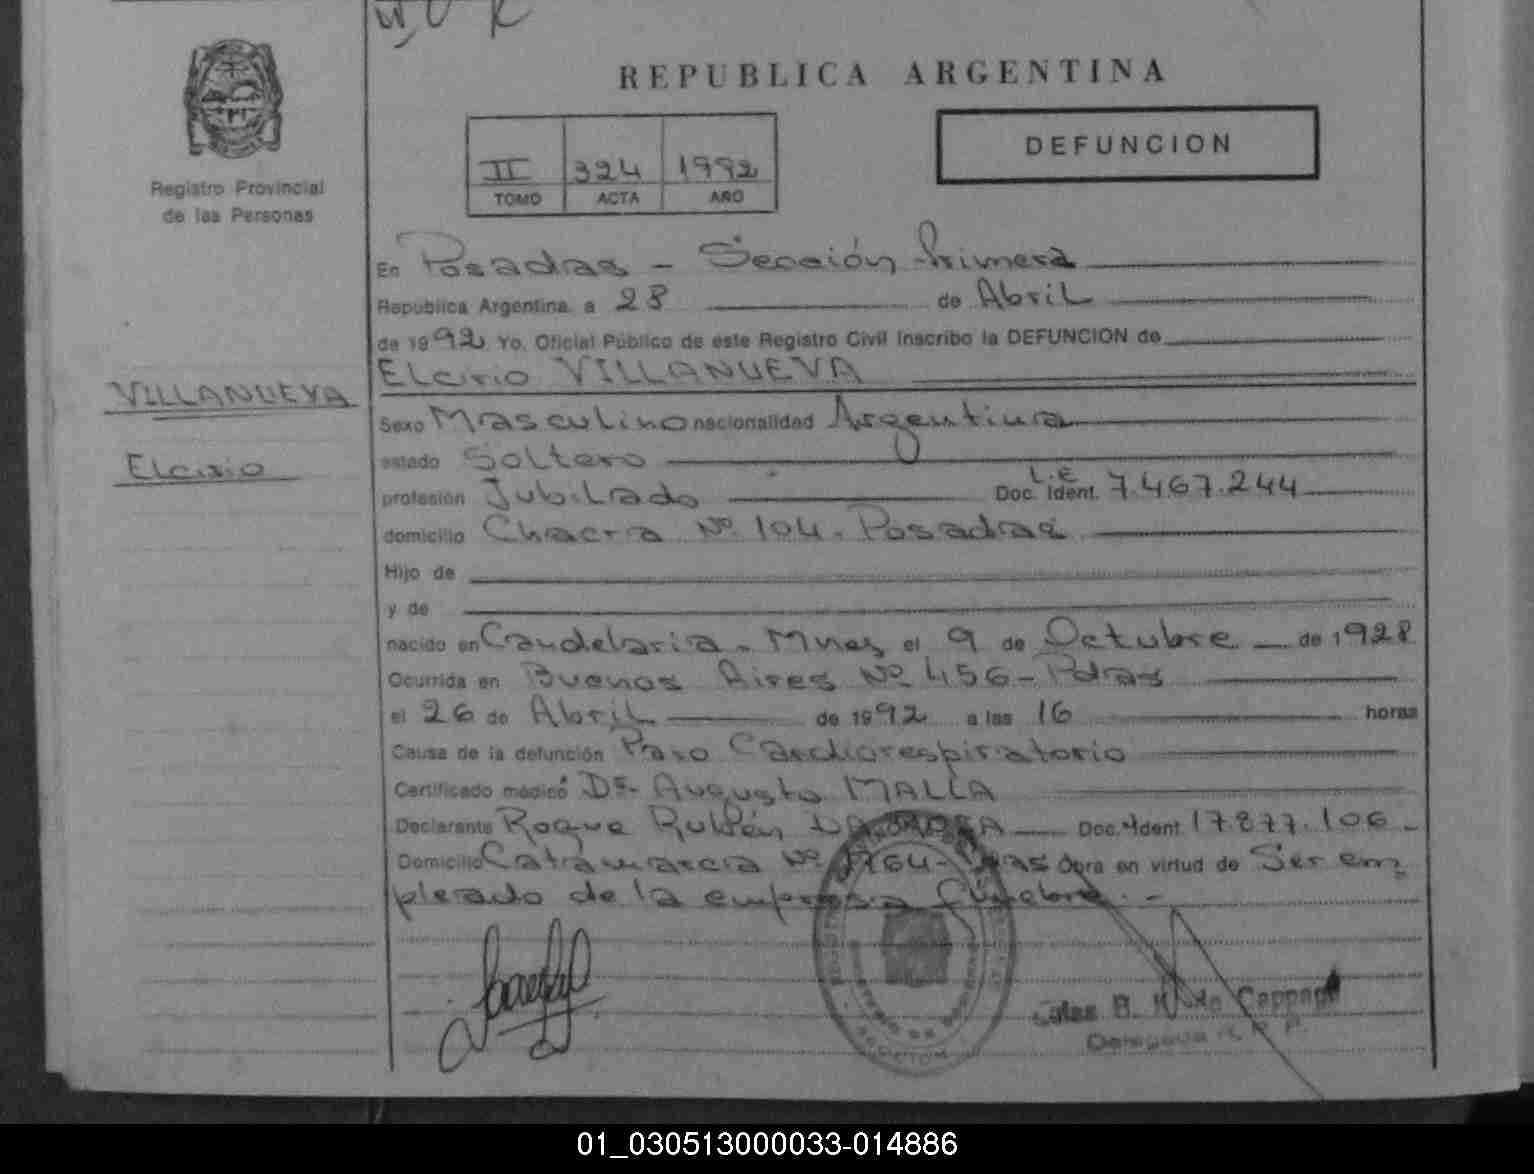 REPUBLICA ARGENTINA
DEFUNCION
II 324 1992
TOMO ACTA AÑO
Registro Provincial
de las Personas
En Posadas - Sección Primera
Republica Argentina, a 28 de Abril
de 1992. Yo, Oficial Público de este Registro Civil Inscribo la DEFUNCION de
Elcirio VILLANUEVA
VILLANUEVA
Elcirio
Sexo Masculino nacionalidad Argentina
estado Soltero
profesión Jubilado Doc. Ident. L.E 7.467.244
domicilio Chacra Nº 104. Posadas
Hijo de
y de
nacido en Candelaria - Mnes el 9 de Octubre de 1928
Ocurrida en Buenos Aires Nº 456 - Pdas
el 26 de Abril de 1992 a las 16 horas
Causa de la defunción Paro Cardiorespiratorio
Certificado médico Dr. Augusto MALLA
Declarante Roque Rubén DA ROSA Doc. Ident. 17.877.106 -
Domicilio Catamarca Nº 1764 - Pdas Obra en virtud de Ser em
pleado de la empresa fúnebre. -
01_030513000033-014886